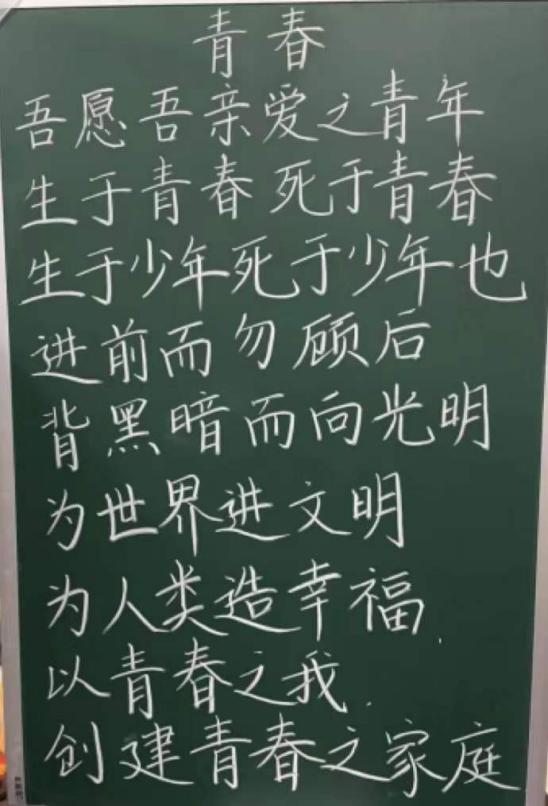 青春
吾愿吾亲爱之青年
生于青春死于青春
生于少年死于少年也
进前而勿顾后
背黑暗而向光明
为世界进文明
为人类造幸福
以青春之我
创建青春之家庭